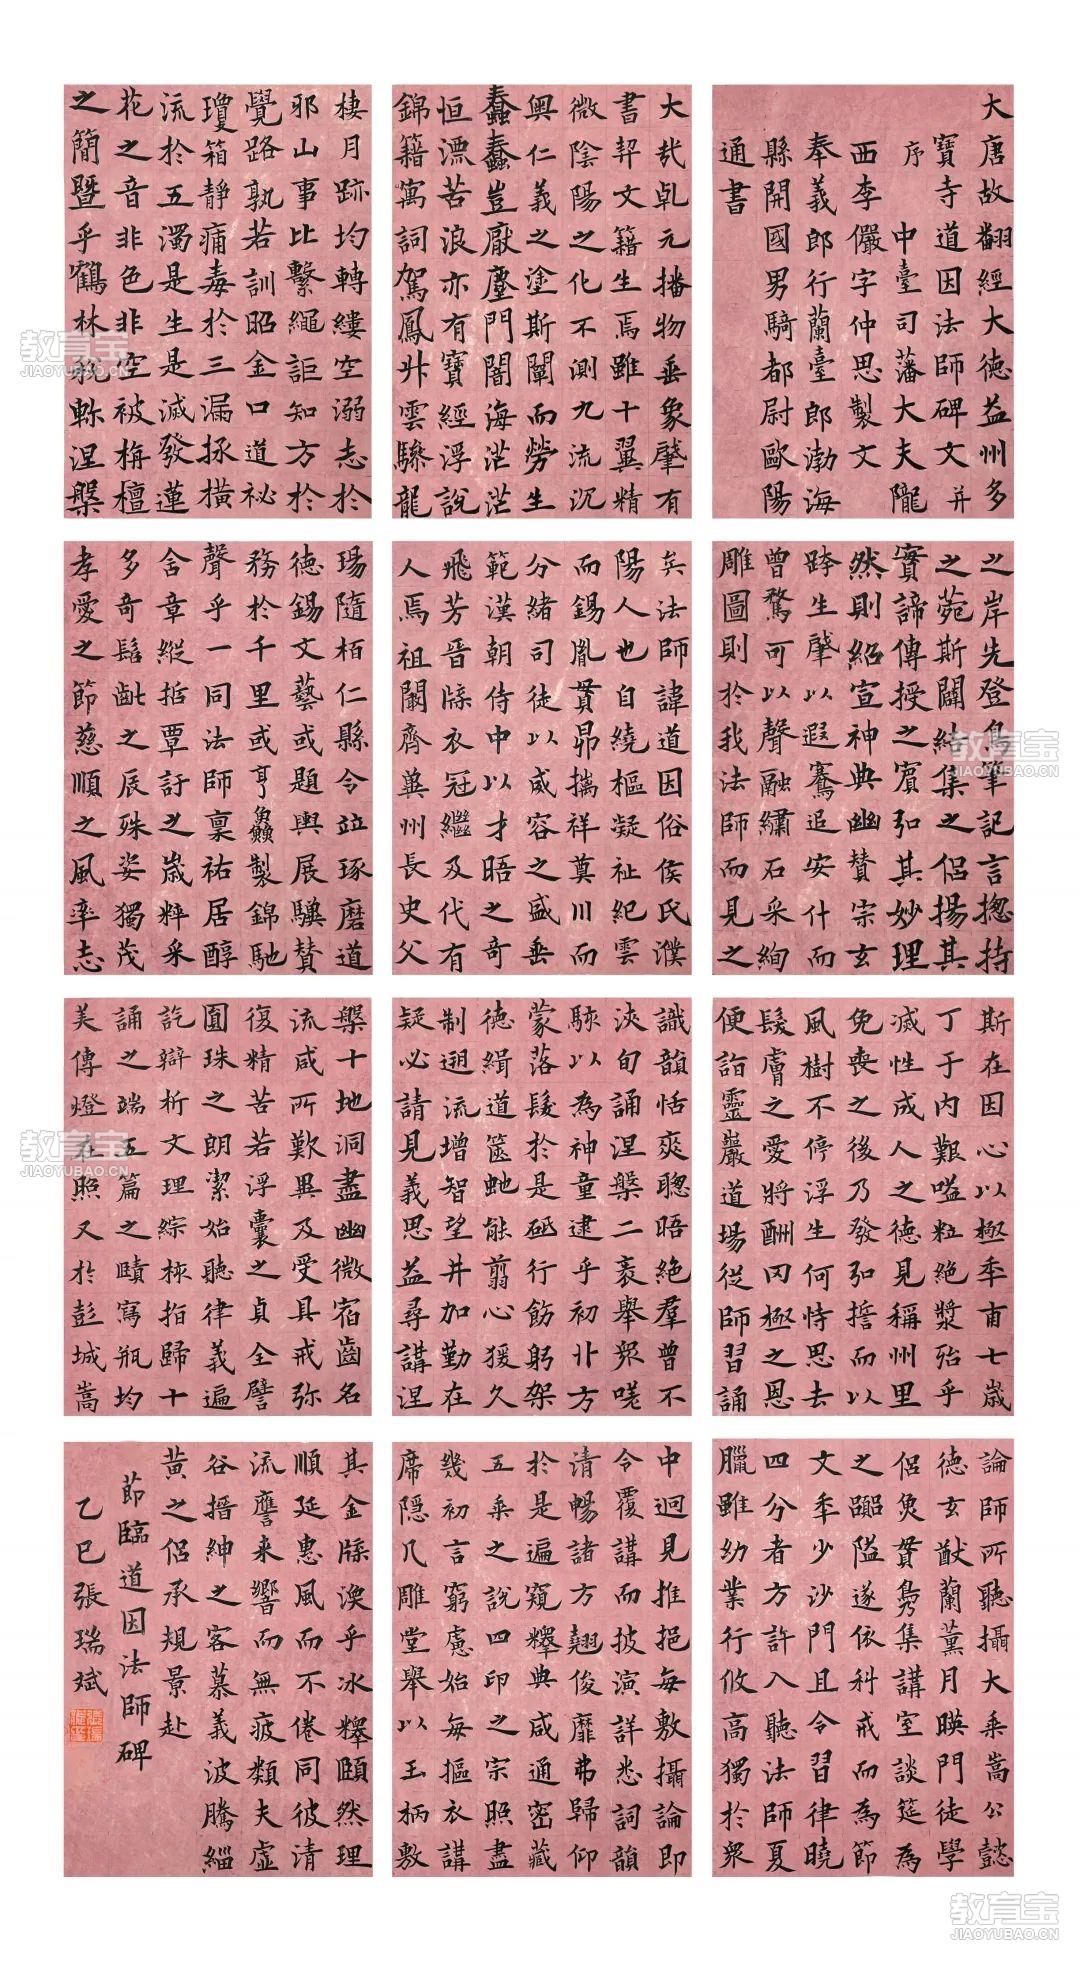 大唐故翻經大德益州多
寶寺道因法師碑文并
序 中臺司藩大夫隴
西李儼字仲思製文
奉義郎行蘭臺郎渤海
縣開國男騎都尉歐陽
通書
大哉乹元播物垂象肇有
書契文籍生焉雖十翼精
微陰陽之化不測九流沉
奧仁義之塗斯闡而勞生
蠢蠢豈厭塵門闇海茫茫
恒漂苦浪亦有寶經浮說
錦籍寓詞駕鳳升雲驂龍
棲月跡均轉縷空溺志於
邪山事比繫繩詎知方於
覺路孰若訓昭金口道祕
瓊箱靜痛毒於三漏拯橫
流於五濁是生是滅發蓮
花之音非色非空被栴檀
之簡暨乎鶴林稅軫涅槃
之岸先登鳥筆記言揔持
之菀斯闢結集之侶揚其
實諦傳授之賓弘其妙理
然則紹宣神典幽賛宗玄
跨生肇以遐騫追安什而
曾騖可以聲融繡石采絢
雕圖則於我法師而見之
矣法師諱道因俗侯氏濮
陽人也自繞樞凝祉紀雲
而錫胤貫昴摛祥奠川而
分緒司徒以威容之盛垂
範漢朝侍中以才晤之奇
飛芳晉牒衣冠繼及代有
人焉祖闡齊冀州長史父
瑒隨栢仁縣令竝琢磨道
德錫文藝或題輿展驥賛
務於千里或亨鱻製錦馳
聲乎一同法師稟祐居醇
含章縱哲覃訏之歲粹采
多奇髫齔之辰殊姿獨茂
孝愛之節慈順之風率志
斯在因心以極年甫七歲
丁于內艱嗌粒絕漿殆乎
滅性成人之德見稱州里
免喪之後乃發弘誓而以
風樹不停浮生何恃思去
髮膚之愛將酬罔極之恩
便詣靈巖道場從師習誦
識韻恬爽聰晤絕羣曾不
浹旬誦涅槃二袠舉衆嗟
駭以為神童逮乎初丱方
蒙落髮於是砥行飭躬架
德緝道篋虵能翦心猨久
制遡流增智望井加勤在
疑必請見義思益尋講涅
槃十地洞盡幽微宿齒名
流咸所歎異及受具戒弥
復精苦若浮囊之貞全譬
圓珠之朗潔始聽律義遍
訖辯析文理綜核指歸十
誦之端五篇之賾寫瓶均
美傳燈在照又於彭城嵩
論師所聽攝大乘嵩公懿
德玄猷蘭薰月暎門徒學
侶魚貫鳧集講室談筵為
之嚻隘遂依科戒而為節
文年少沙門且令習律曉
四分者方許入聽法師夏
臘雖幼業行攸高獨於衆
中迥見推挹每敷攝論即
令覆講而披演詳悉詞韻
清暢諸方翹俊靡弗歸仰
於是遍窺釋典咸通密藏
五乘之說四印之宗照盡
幾初言窮慮始每摳衣講
席隱几雕堂舉以玉柄敷
其金牒渙乎冰釋頤然理
順延惠風而不倦同彼清
流譍来響而無疲類夫虛
谷搢紳之客慕義波騰緇
黄之侶承規景赴
節臨道因法師碑
乙巳張瑞斌
教育宝
JIAOYUBAO.CN
教育宝
JIAOYUBAO.CN
教育宝
JIAOYUBAO.CN
教育宝
JIAOYUBAO.CN